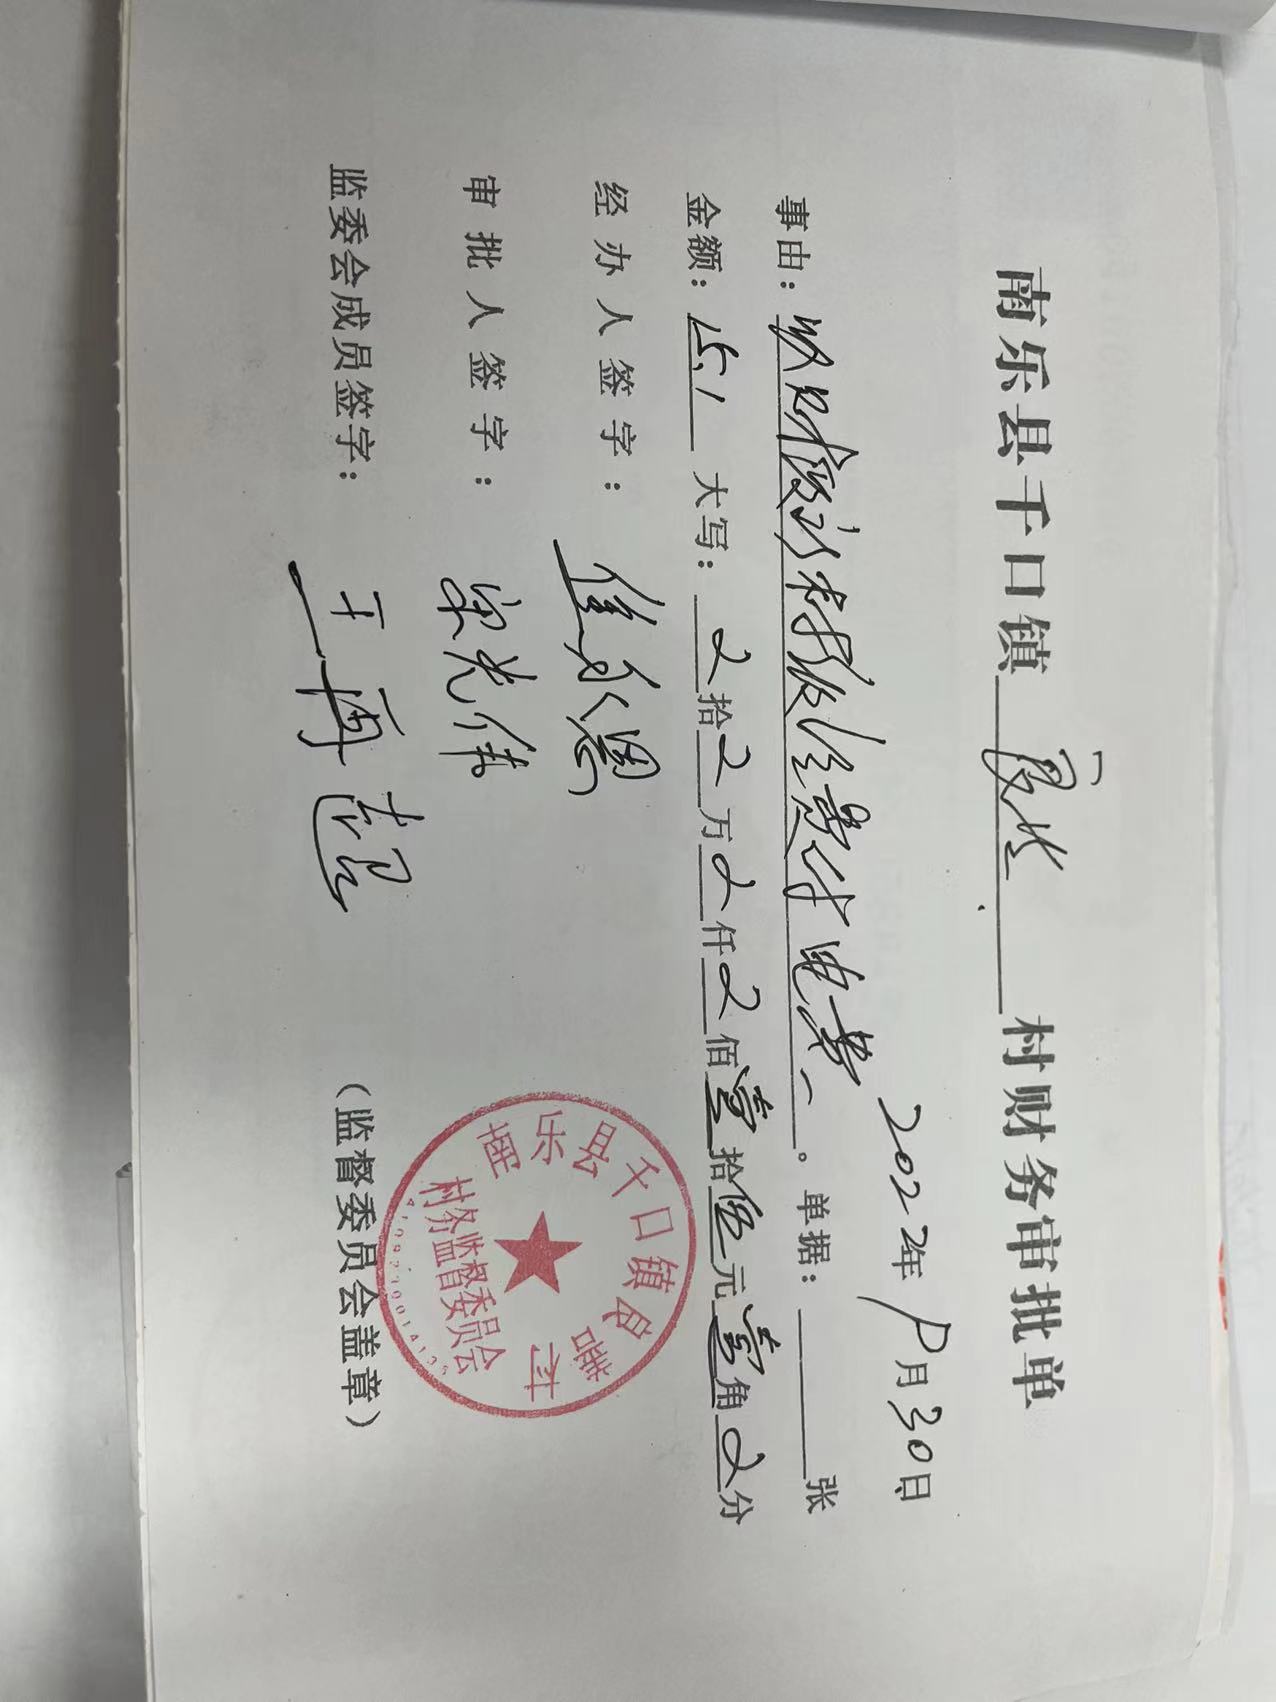 南乐县千口镇村财务审批单
2022年9月30日
事由：财村级经费付电费。单据：张
金额：15.1 大写：拾万仟佰壹拾伍元壹角分
经办人签字：
审批人签字：宋光伟
监委会成员签字：
（监督委员会盖章）
南乐县千口镇良善村
村务监督委员会